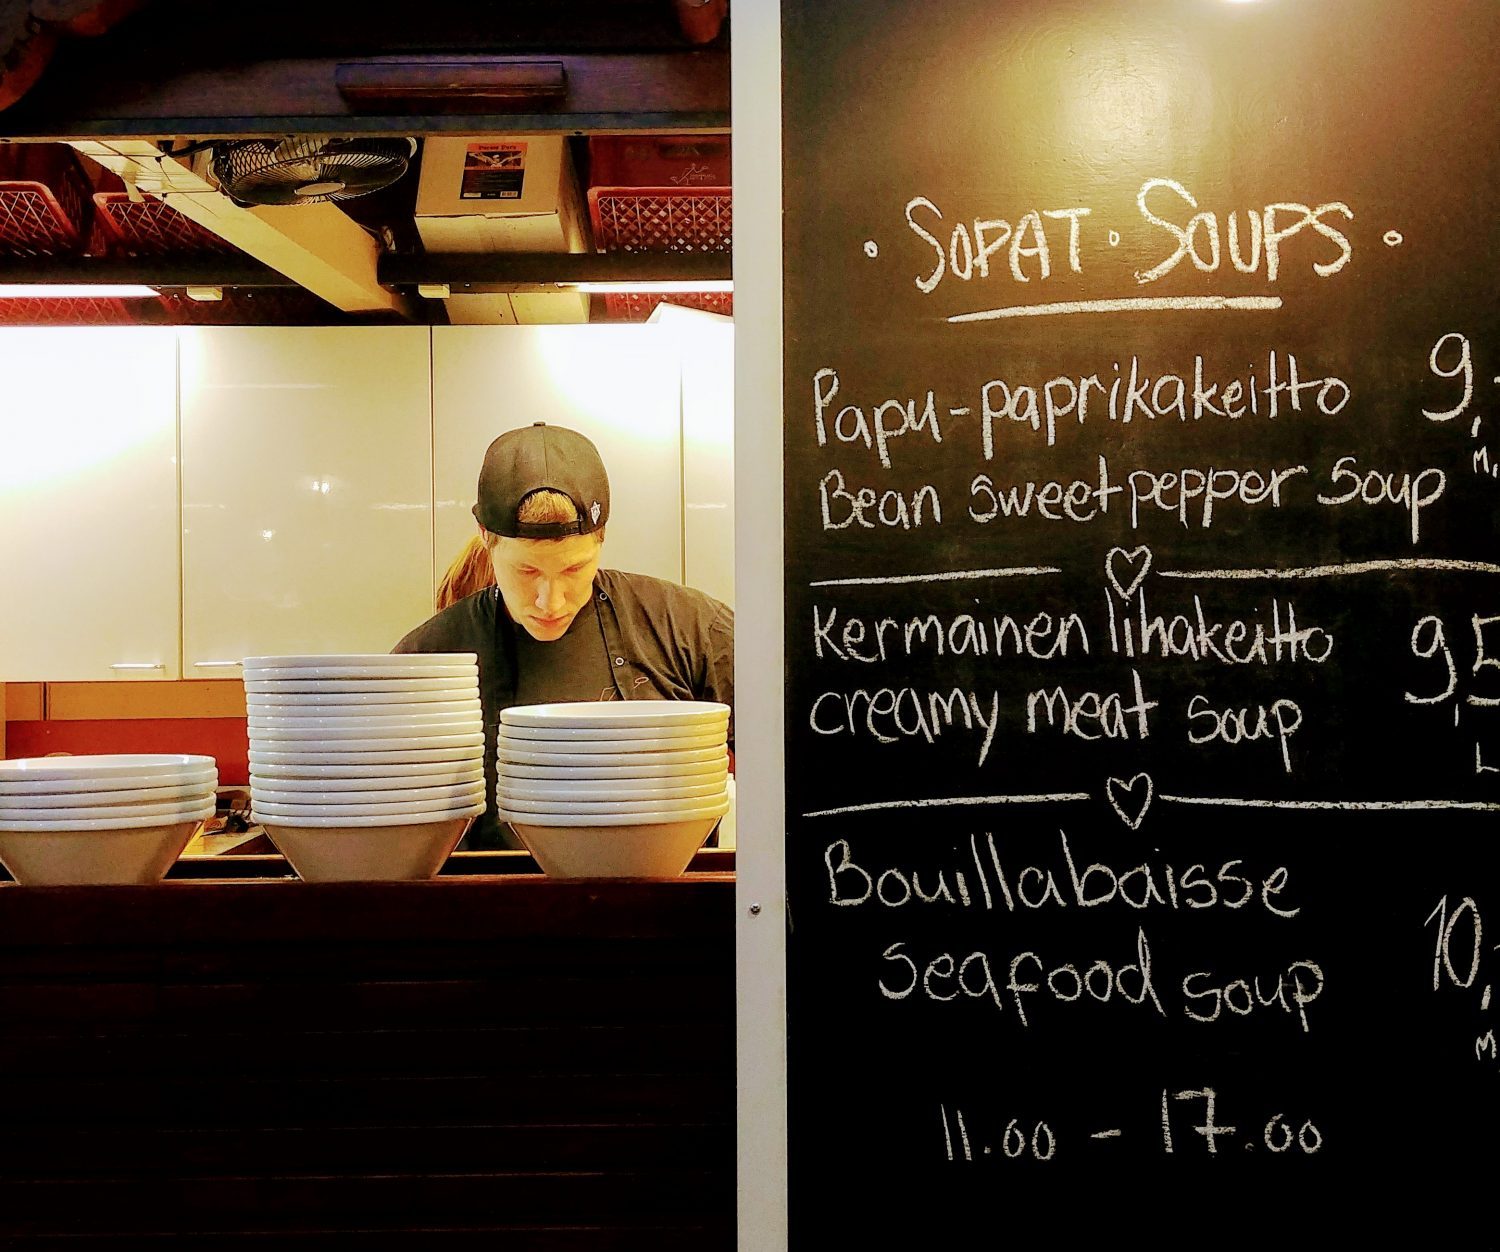 SOPAT · SOUPS
Papu-paprikakeitto 9,-
Bean sweetpepper soup M,
Kermainen lihakeitto 9,5
creamy meat soup L
Bouillabaisse
seafood soup 10,-
M
11.00 - 17.00